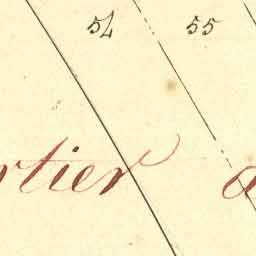 54 55
rtier a